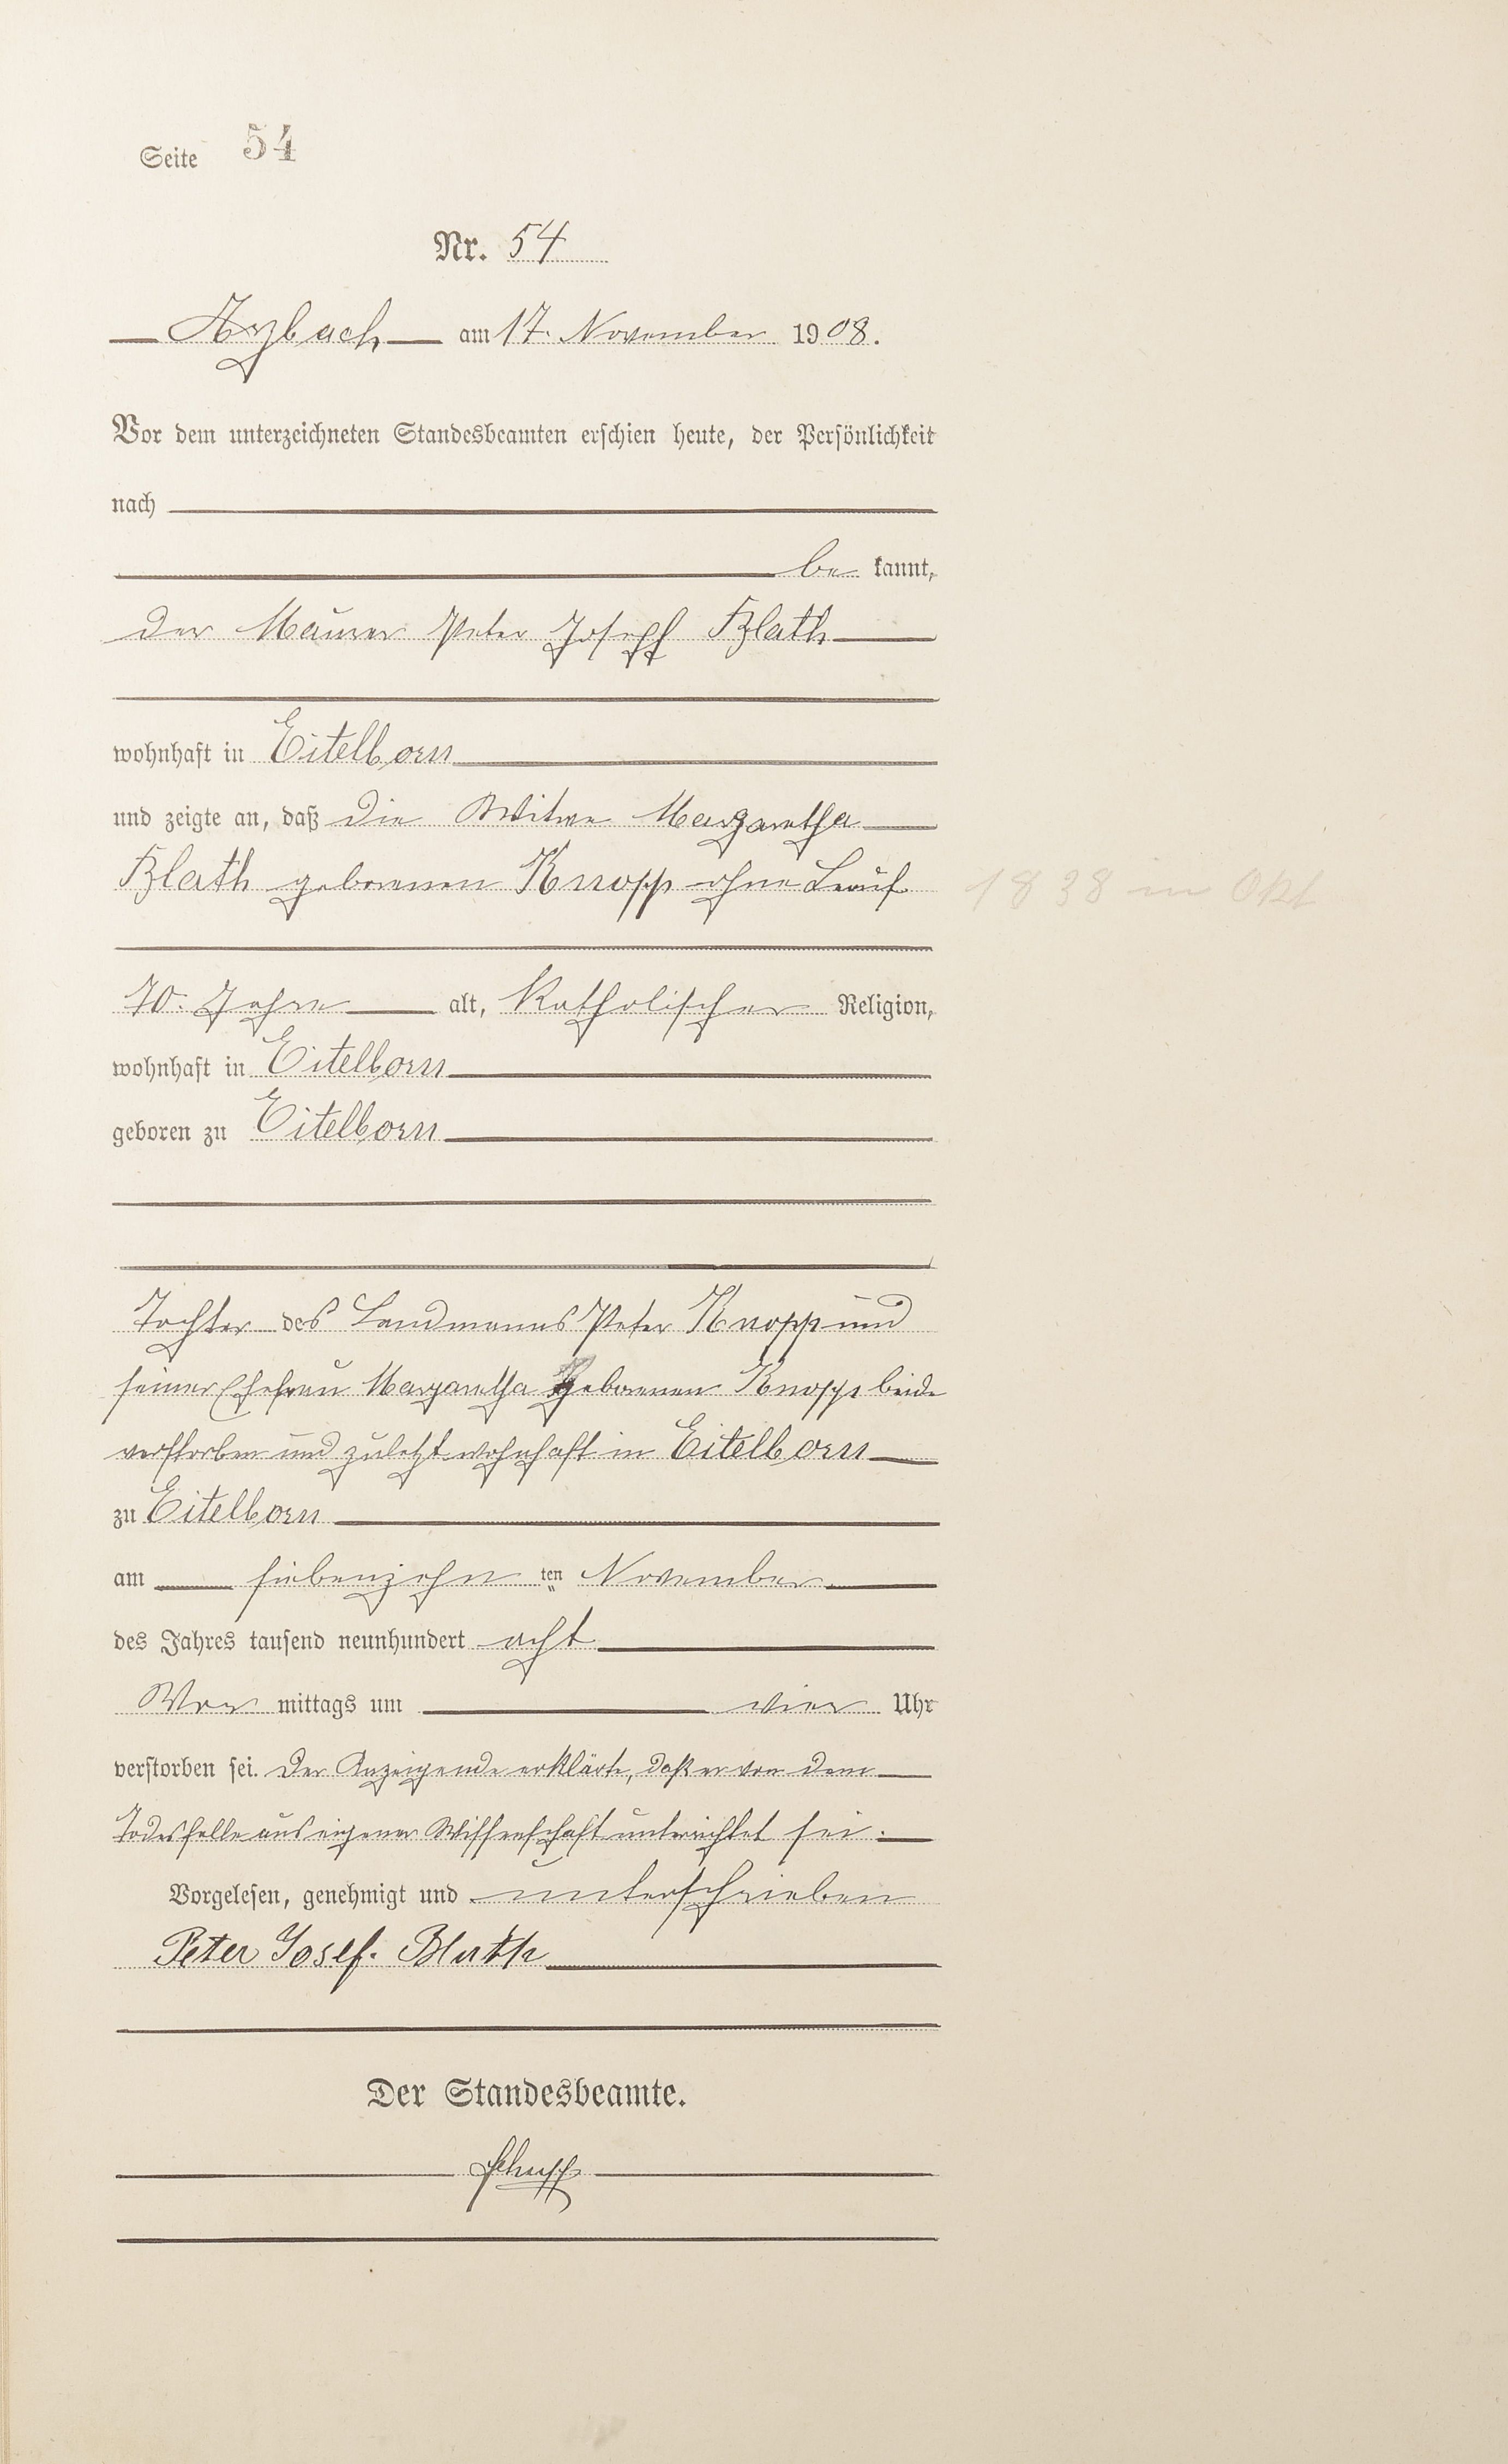 Seite 54
Nr. 54
Arzbach am 17. November 1908.
Vor dem unterzeichneten Standesbeamten erschien heute, der Persönlichkeit
nach
be kannt,
der Maurer Peter Joseph Blath
wohnhaft in Eitelborn
und zeigte an, daß die Witwe Margaretha
Blath geborenen Knopp ohne Beruf
1838 in Okt
70. Jahre alt, katholischer Religion,
wohnhaft in Eitelborn
geboren zu Eitelborn
Tochter des Landmanns Peter Knopp und
seiner Ehefrau Margaretha geborenen Knopp beide
verstorben und zuletzt wohnhaft in Eitelborn
zu Eitelborn
am siebenzehn ten November
des Jahres tausend neunhundert acht
Vor mittags um vier Uhr
verstorben sei. Der Anzeigende erklärte, daß er von dem
Todesfalle aus eigener Wissenschaft unterrichtet sei.
Vorgelesen, genehmigt und unterschrieben
Peter Josef. Blath
Der Standesbeamte.